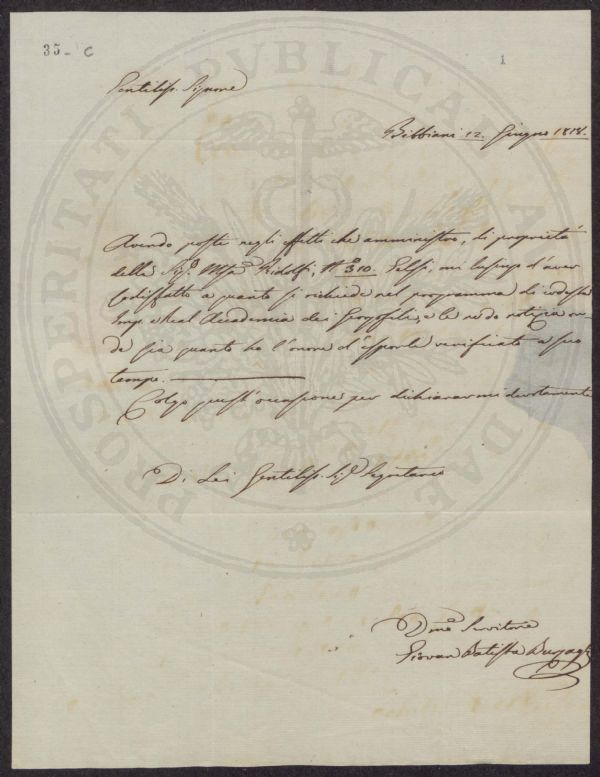 35 - C
1
Gentiliss. Signore
Bibbiani 12. Giugno 1818.
Avendo poste negli effetti che amministro, di proprietà
della Sigra. Mssa. Ridolfi, No. 310. Gelsi, mi lusingo d'aver
sodisfatto a quanto si richiede nel programma di codesta
Imp. e Real Accademia dei Georgofili, e le ne do notizia on-
de sia quanto ho l'onore d'esporle verificato a suo
tempo.
Colgo quest'occasione per dichiararmi devotamente
Di Lei Gentiliss. Sigr. Segretario
Servitore
Giovan Batista
PROSPERITATI PVBLICAE AVGENDAE